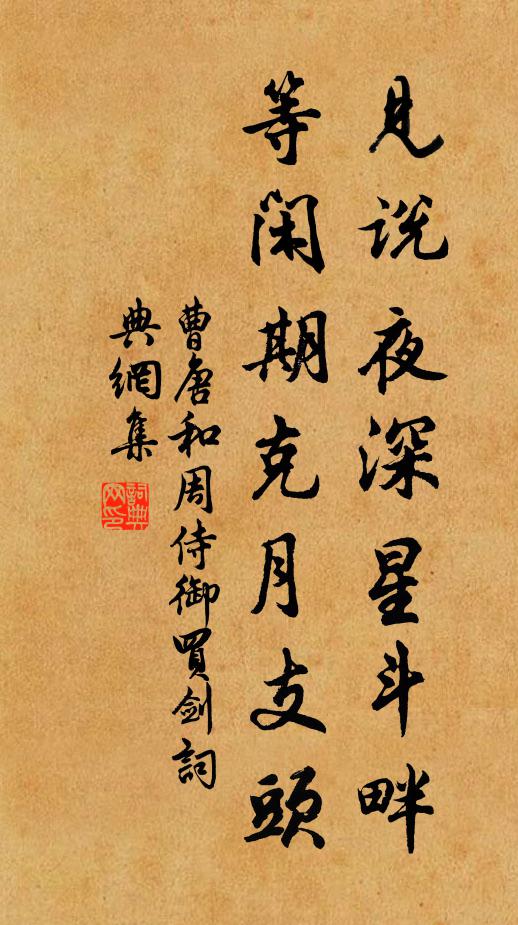 見说夜深星斗畔
等闲期克月支頭
曹唐和周侍御買劍詞
典網集
詞典網印